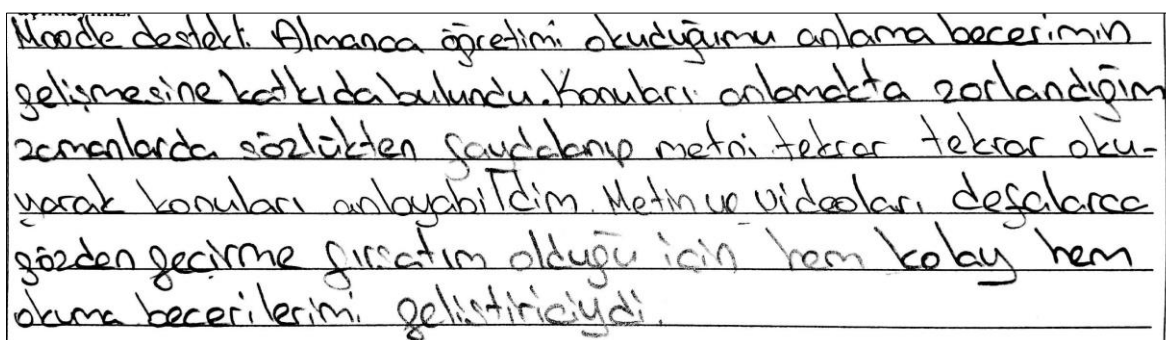 Moodle destekli Almanca öğretimi okuduğumu anlama becerimin
gelişmesine katkıda bulundu. Konuları anlamakta zorlandığım
zamanlarda sözlükten faydalanıp metni tekrar tekrar oku-
yarak konuları anlayabildim. Metin ve videoları defalarca
gözden geçirme fırsatım olduğu için hem kolay hem
okuma becerilerimi geliştiriciydi.